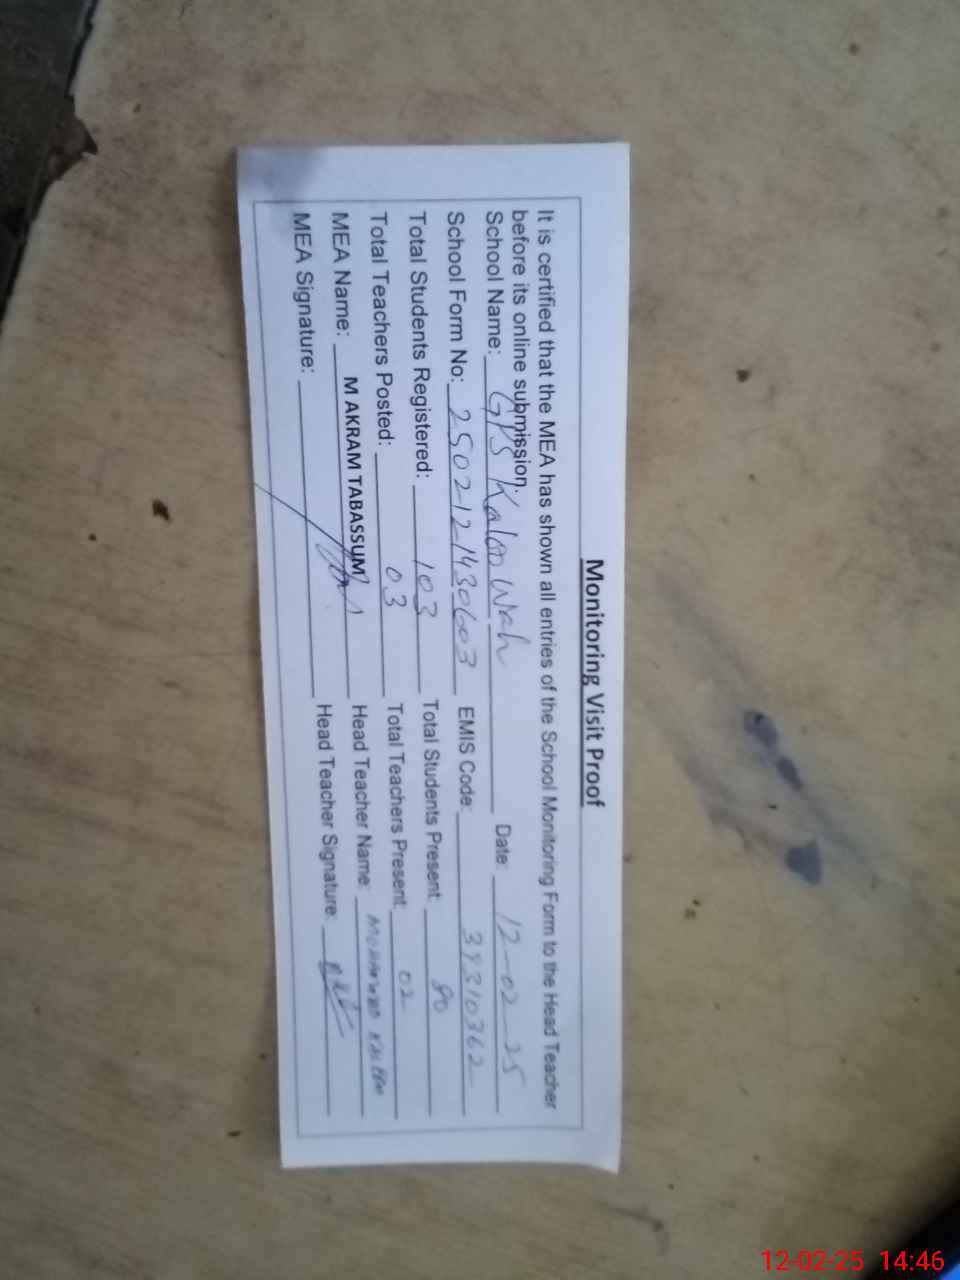 Monitoring Visit Proof
It is certified that the MEA has shown all entries of the School Monitoring Form to the Head Teacher
before its online submission.
School Name: GPS Kaloo Wah Date: 12-02-25
School Form No: 250212143060​3 EMIS Code: 39310362
Total Students Registered: 103 Total Students Present: 80
Total Teachers Posted: 03 Total Teachers Present: 02
MEA Name: M AKRAM TABASSUM Head Teacher Name: MUHAMMAD KALEEM
MEA Signature: Head Teacher Signature:
12-02-25 14:46